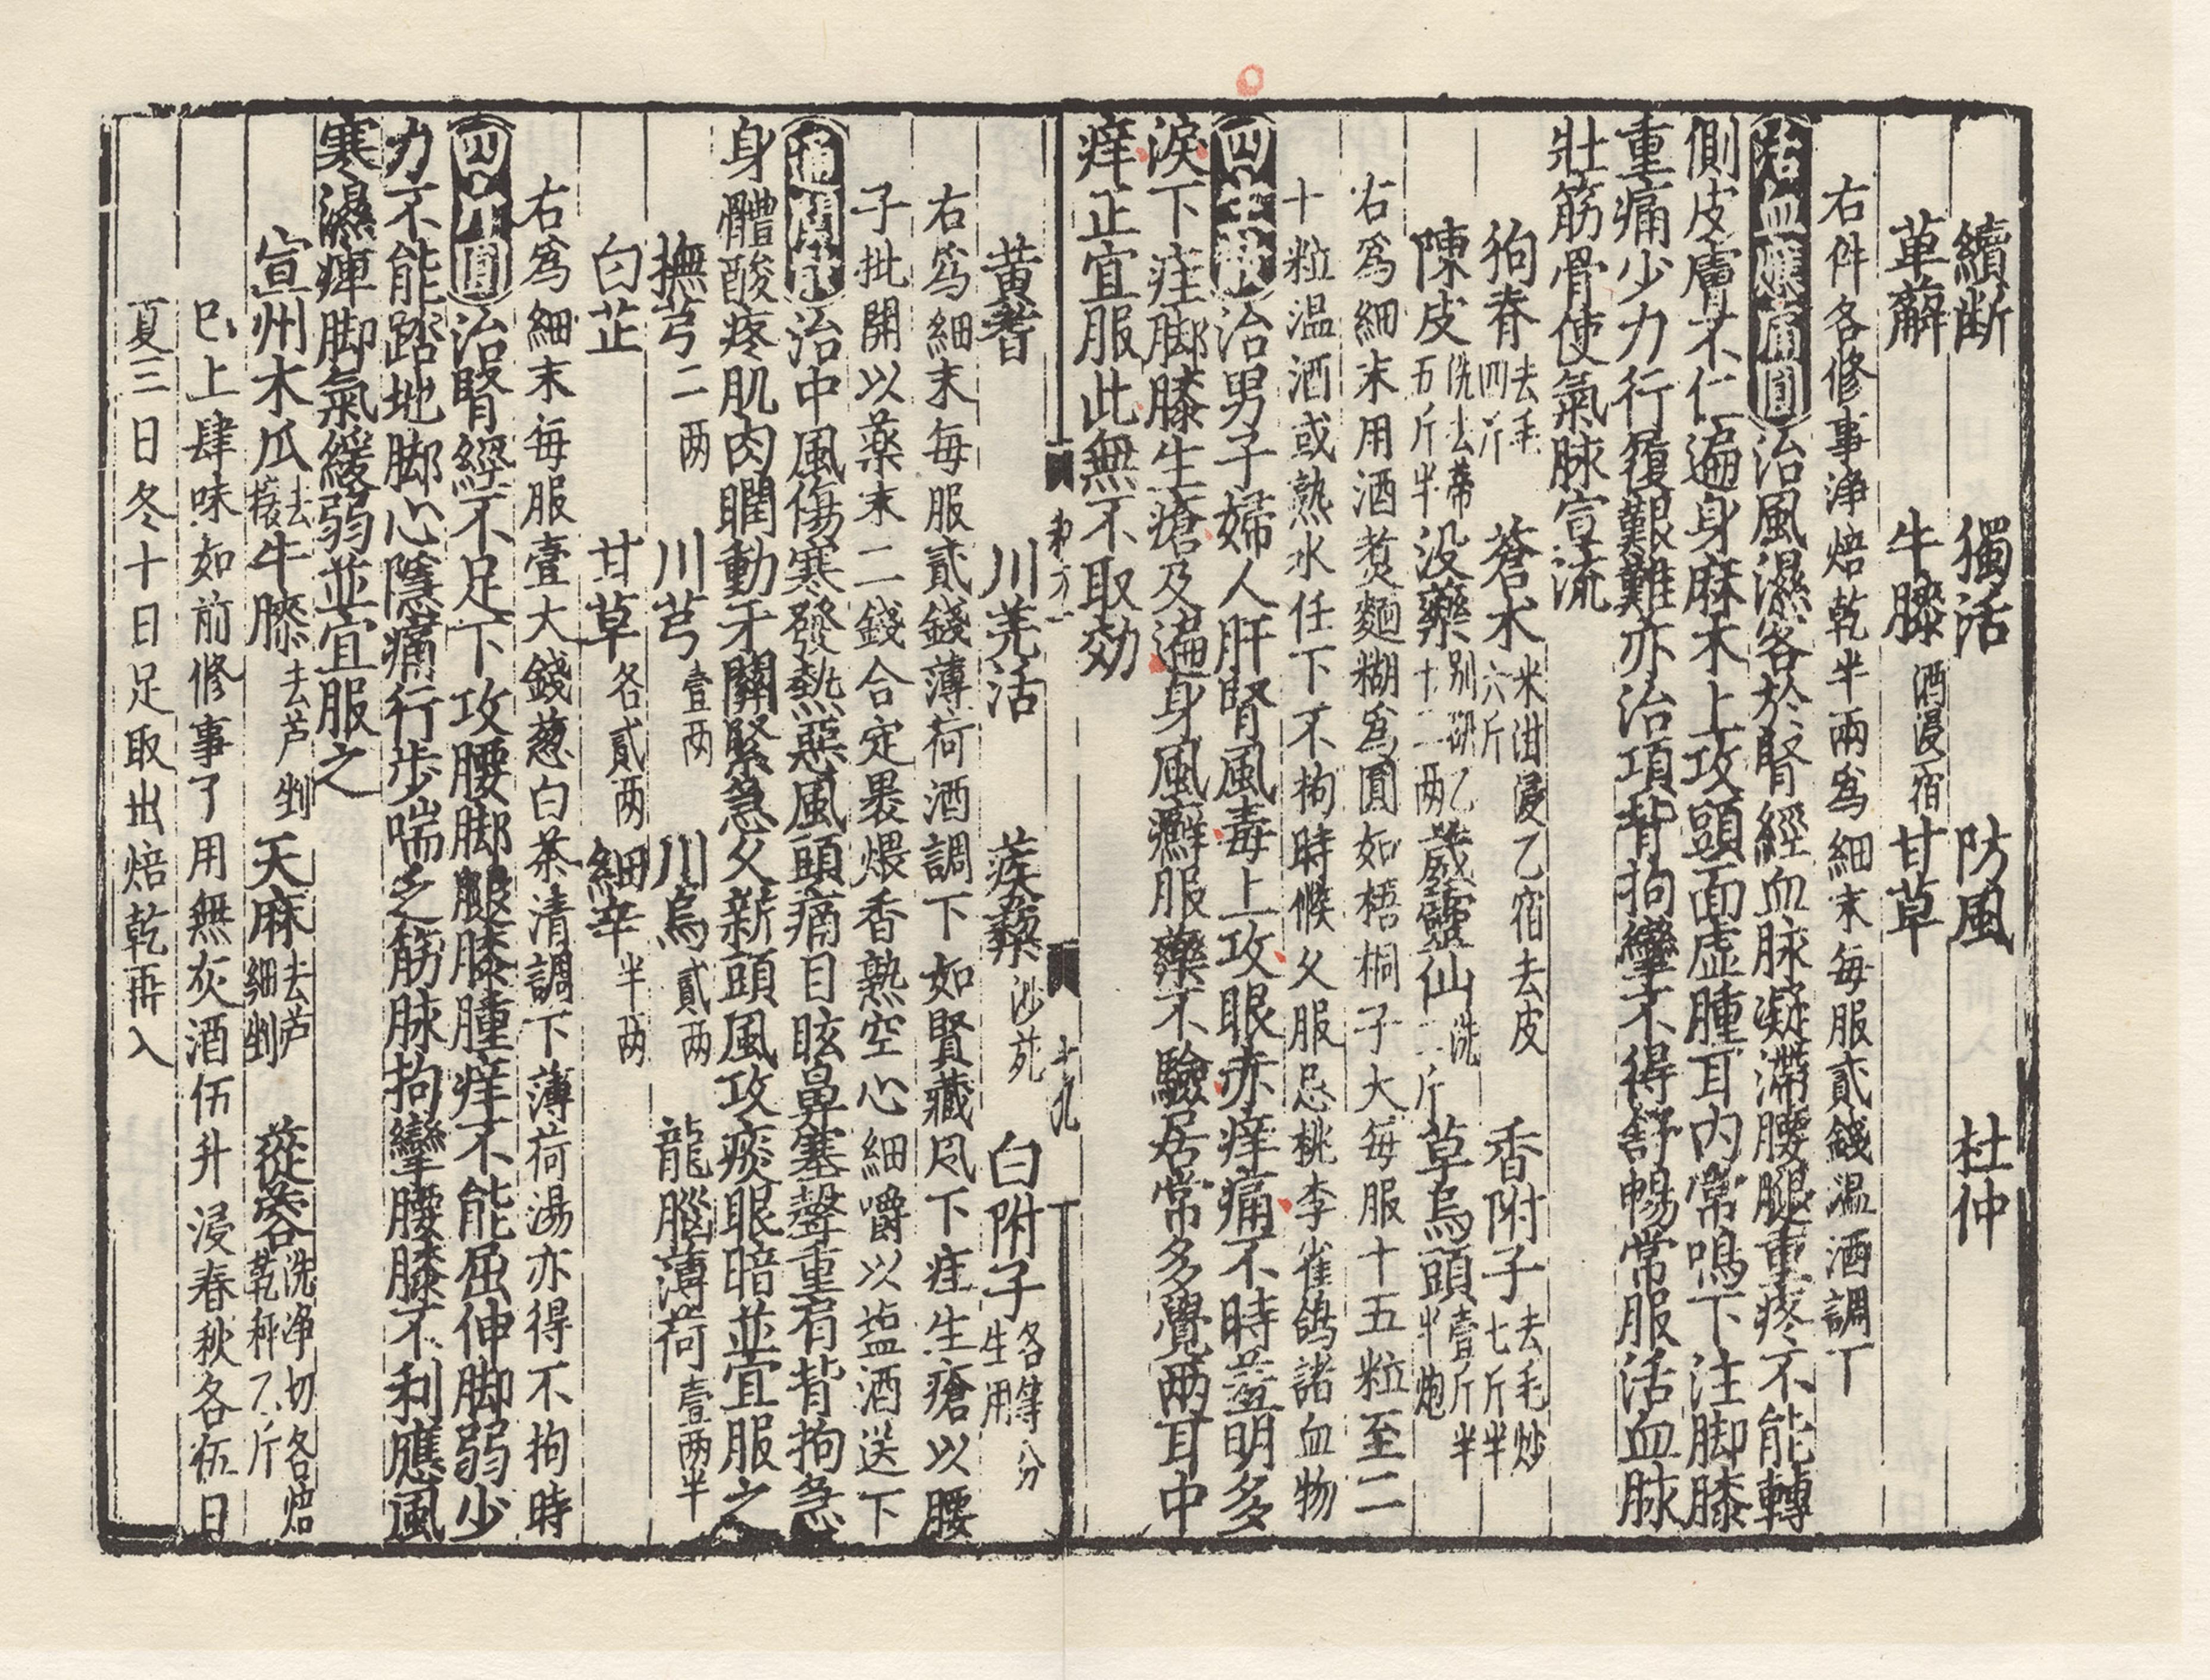 續斷　獨活　防風　杜仲
萆薢　牛膝酒浸宿　甘草
右件各修事淨焙乾半兩爲細末每服貳錢溫酒調丁
活血應痛圓治風濕客於腎經血脉凝滯腰腿重疼不能轉
側皮膚不仁遍身麻木上攻頭面虚腫耳内常鳴下注脚膝
重痛少力行履艱難亦治項背拘攣不得舒暢常服活血脉
壯筋骨使氣脉宣流
狗脊去毛四斤　蒼木米泔浸乙宿去皮六斤　香附子去毛炒七斤半
陳皮洗去蔕五斤半　没藥別研乙十二两　葳靈仙洗二斤　草烏頭壹斤半半炮
右爲細末用酒煑麵糊爲圓如梧桐子大每服十五粒至二
十粒温酒或熱水任下不拘時候久服忌桃李雀鴿諸血物
四生散治男子婦人肝腎風毒上攻眼赤痒痛不時羞明多
淚下疰脚膝生瘡及遍身風癬服藥不驗居常多覺兩耳中
痒正宜服此無不取効
十九
黄耆　川羌活　蒺蔾沙苑　白附子各等分生用
右爲細末每服貳錢薄荷酒調下如腎藏風下疰生瘡以腰
子批開以藥末二錢合定裹煨香熟空心細嚼以塩酒送下
通關散治中風傷寒發熱惡風頭痛目眩鼻塞聲重肩背拘急
身體酸疼肌肉瞤動牙關緊急久新頭風攻痰眼暗並宜服之
撫芎二两　川芎壹两　川烏貳两　龍腦薄荷壹两半
白芷　甘草各貳两　細辛半两
右爲細末每服壹大錢葱白茶清調下薄荷湯亦得不拘時
四斤圓治腎經不足下攻腰脚腿膝腫痒不能屈伸脚弱少
力不能踏地脚心隱痛行步喘乏筋脉拘攣腰膝不利應風
寒濕痺脚氣緩弱並宜服之
宣州木瓜去穰　牛膝去芦剉　天麻去芦細剉　蓯蓉洗净切各焙乾秤乙斤
已上肆味如前修事了用無灰酒伍升浸春秋各伍日
夏三日冬十日足取出焙乾再入